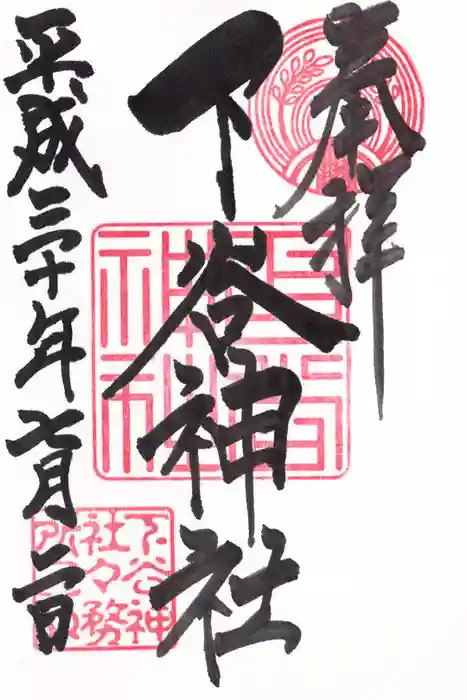 奉拝
下谷神社
平成三十年七月二日
下谷神
社々務
所之印